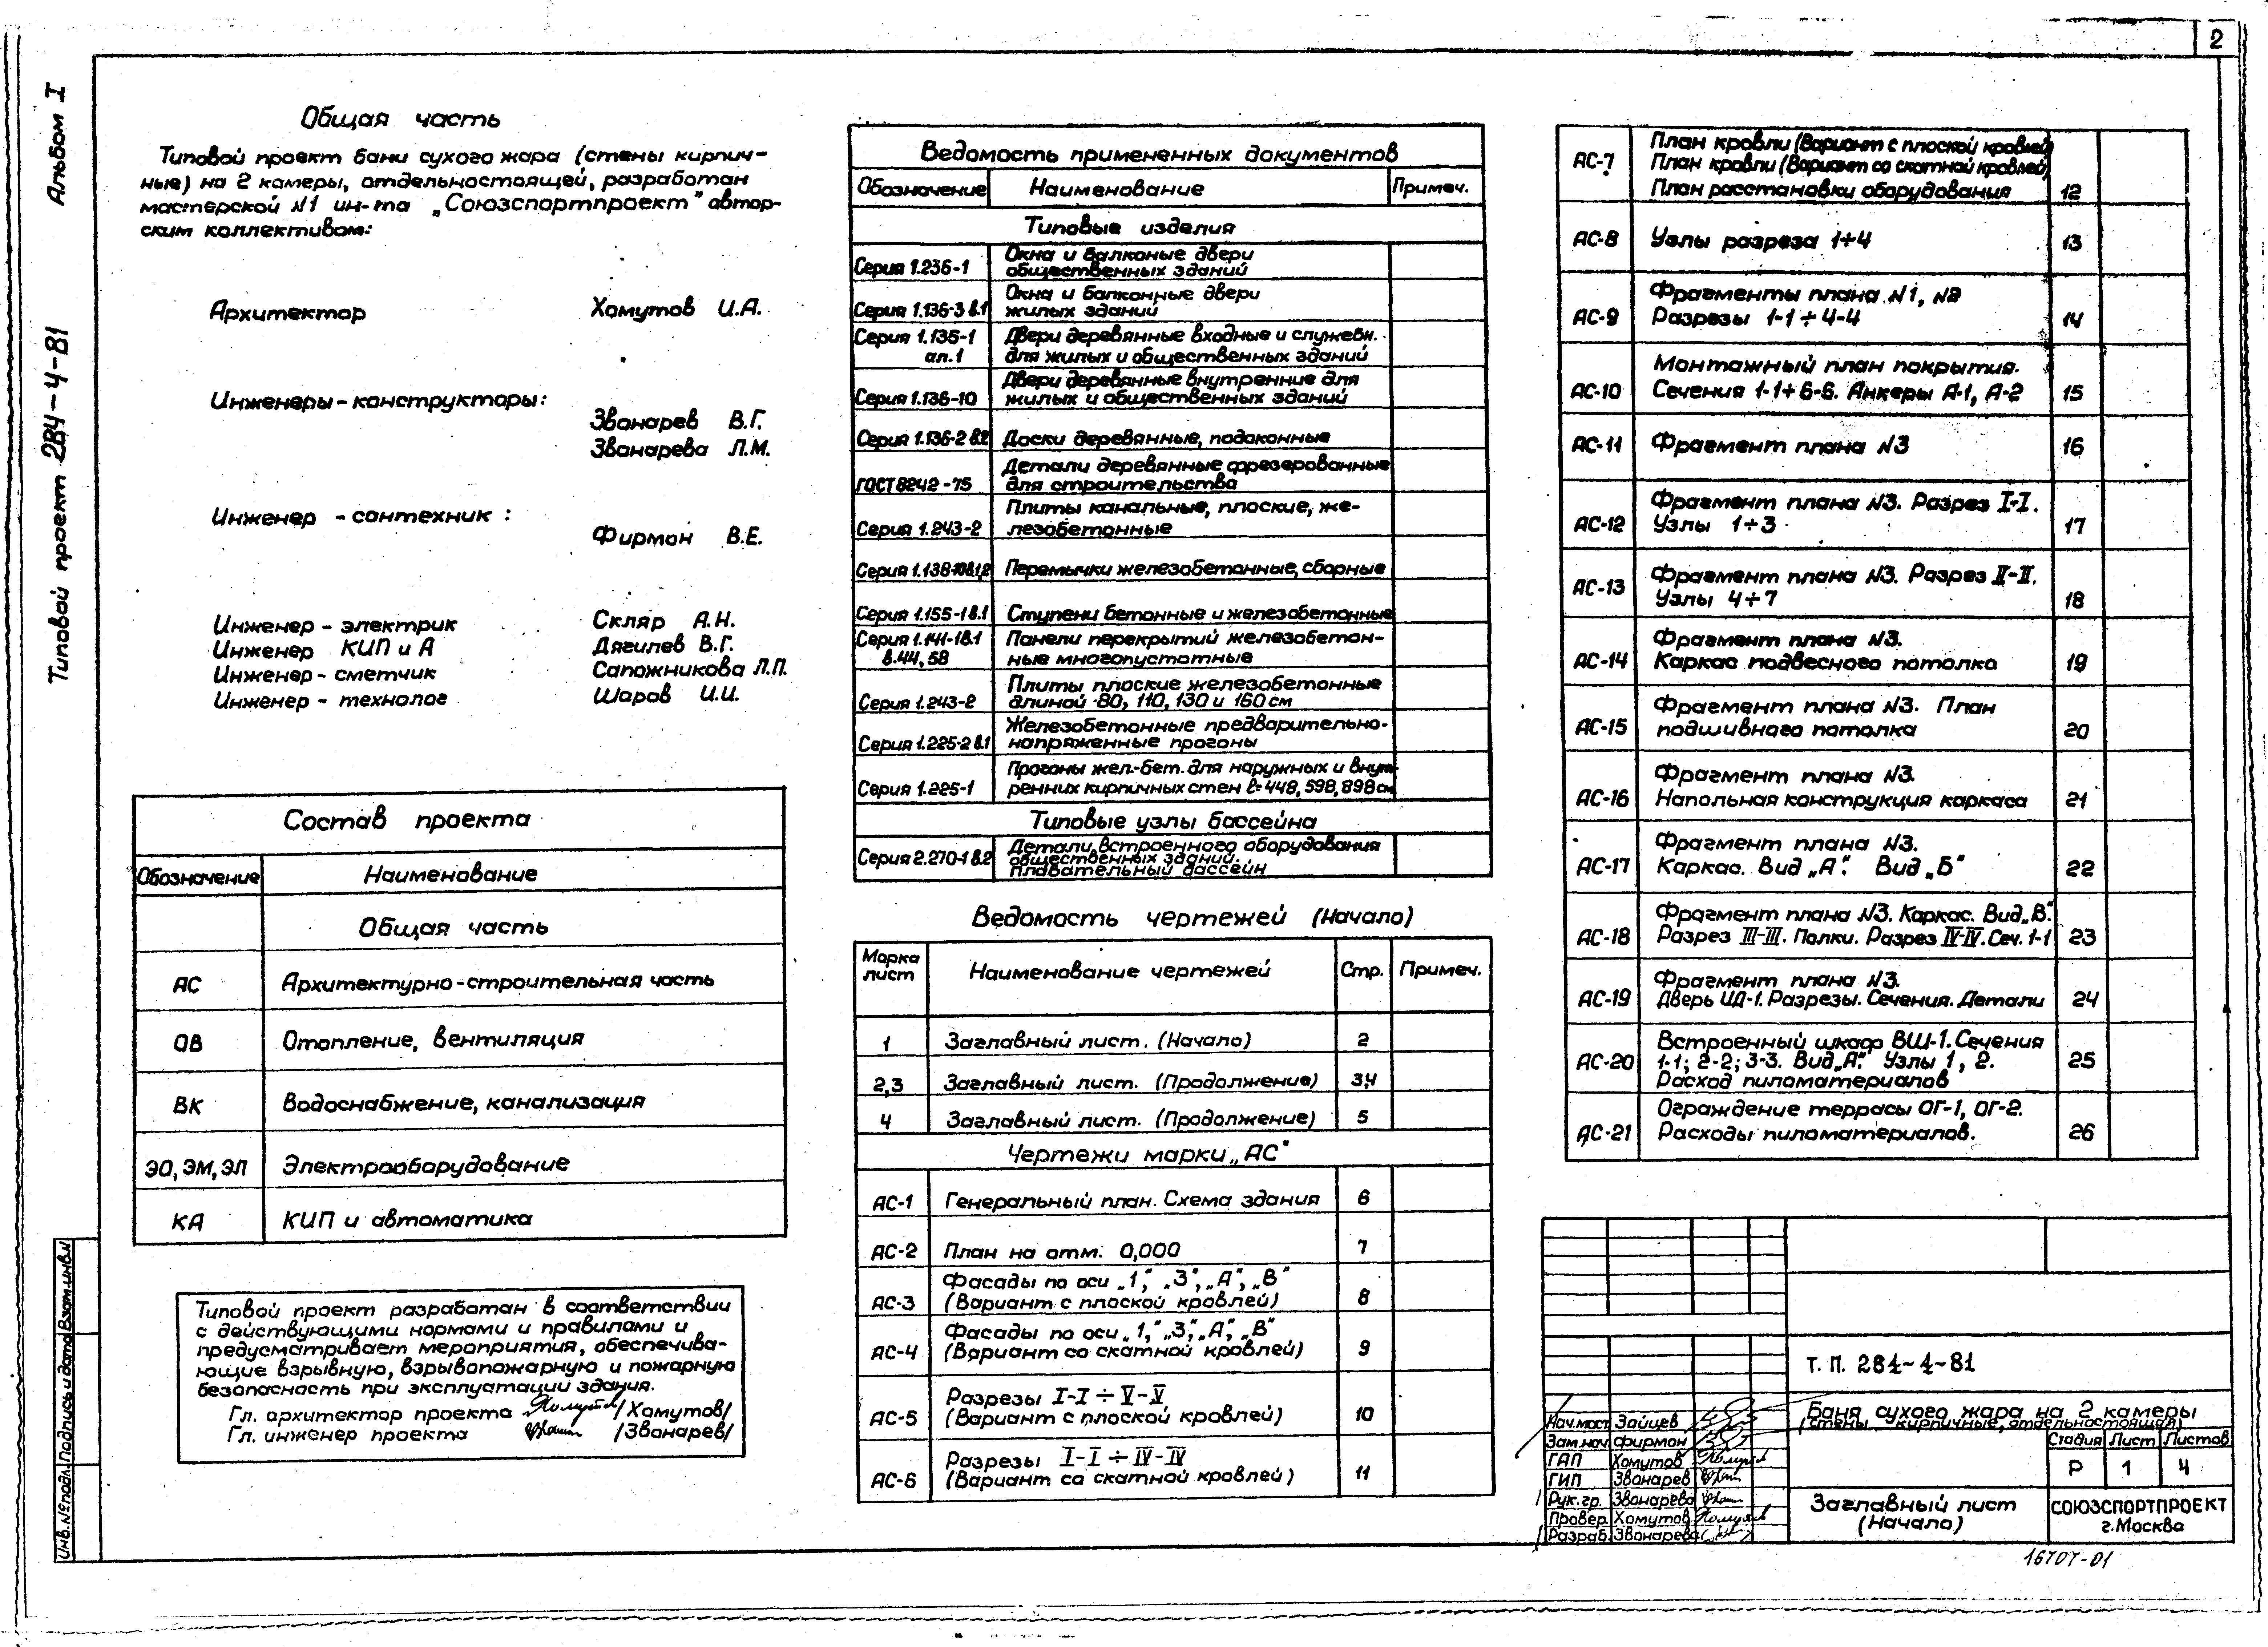 2
Альбом I
Типовой проект 284-4-81
Общая часть
Типовой проект бани сухого жара (стены кирпич-
ные) на 2 камеры, отдельностоящей, разработан
мастерской N1 ин-та „Союзспортпроект" автор-
ским коллективом:
Архитектор Хомутов И.А.
Инженеры-конструкторы:
Звонарев В.Г.
Звонарева Л.М.
Инженер - сантехник :
Фирман В.Е.
Инженер - электрик Скляр А.Н.
Инженер КИП и А Дягилев В.Г.
Инженер-сметчик Сапожникова Л.П.
Инженер - технолог Шаров И.И.
Состав проекта
Обозначение Наименование
Общая часть
АС Архитектурно-строительная часть
ОВ Отопление, вентиляция
ВК Водоснабжение, канализация
ЭО, ЭМ, ЭЛ Электрооборудование
КА КИП и автоматика
Типовой проект разработан в соответствии
с действующими нормами и правилами и
предусматривает мероприятия, обеспечива-
ющие взрывную, взрывопожарную и пожарную
безопасность при эксплуатации здания.
Гл. архитектор проекта /Хомутов/
Гл. инженер проекта /Звонарев/
Инв.№подл. Подпись и дата Взам.инв.N
Ведомость примененных документов
Обозначение Наименование Примеч.
Типовые изделия
Серия 1.236-1 Окна и балконые двери
общественных зданий
Серия 1.136-3 в.1 Окна и балконные двери
жилых зданий
Серия 1.135-1 Двери деревянные входные и служебн.
ал.1 для жилых и общественных зданий
Серия 1.136-10 Двери деревянные внутренние для
жилых и общественных зданий
Серия 1.136-2 в.2 Доски деревянные, подоконные
ГОСТ 8242-75 Детали деревянные фрезерованные
для строительства
Серия 1.243-2 Плиты канальные, плоские, же-
лезобетонные
Серия 1.138-10в.1,2 Перемычки железобетонные, сборные
Серия 1.155-1 в.1 Ступени бетонные и железобетонные
Серия 1.141-1в.1 Панели перекрытий железобетон-
в.44, 58 ные многопустотные
Серия 1.243-2 Плиты плоские железобетонные
длиной 80, 110, 130 и 160 см
Серия 1.225-2 в.1 Железобетонные предварительно-
напряженные прогоны
Серия 1.225-1 Прогоны жел.-бет. для наружных и внут-
ренних кирпичных стен ℓ=448, 598, 898 см
Типовые узлы бассейна
Серия 2.270-1 в.2 Детали встроенного оборудования
общественных зданий.
Плавательный бассейн
Ведомость чертежей (Начало)
Марка лист Наименование чертежей Стр. Примеч.
1 Заглавный лист. (Начало) 2
2,3 Заглавный лист. (Продолжение) 3,4
4 Заглавный лист. (Продолжение) 5
Чертежи марки „АС"
АС-1 Генеральный план. Схема здания 6
АС-2 План на отм. 0,000 7
АС-3 Фасады по оси „1", „3", „А", „В"
(Вариант с плоской кровлей) 8
АС-4 Фасады по оси „1", „3", „А", „В"
(Вариант со скатной кровлей) 9
АС-5 Разрезы I-I ÷ V-V
(Вариант с плоской кровлей) 10
АС-6 Разрезы I-I ÷ IV-IV
(Вариант со скатной кровлей) 11
АС-7 План кровли (Вариант с плоской кровлей)
План кровли (Вариант со скатной кровлей)
План расстановки оборудования 12
АС-8 Узлы разреза 1÷4 13
АС-9 Фрагменты плана N1, N2
Разрезы 1-1 ÷ 4-4 14
АС-10 Монтажный план покрытия.
Сечения 1-1÷6-6. Анкеры А-1, А-2 15
АС-11 Фрагмент плана N3 16
АС-12 Фрагмент плана N3. Разрез I-I.
Узлы 1÷3 17
АС-13 Фрагмент плана N3. Разрез II-II.
Узлы 4÷7 18
АС-14 Фрагмент плана N3.
Каркас подвесного потолка 19
АС-15 Фрагмент плана N3. План
подшивного потолка 20
АС-16 Фрагмент плана N3.
Напольная конструкция каркаса 21
АС-17 Фрагмент плана N3.
Каркас. Вид „А". Вид „Б" 22
АС-18 Фрагмент плана N3. Каркас. Вид „В".
Разрез III-III. Полки. Разрез IV-IV. Сеч. 1-1 23
АС-19 Фрагмент плана N3.
Дверь ИД-1. Разрезы. Сечения. Детали 24
АС-20 Встроенный шкаф ВШ-1. Сечения
1-1; 2-2; 3-3. Вид „А". Узлы 1, 2.
Расход пиломатериалов 25
АС-21 Ограждение террасы ОГ-1, ОГ-2.
Расходы пиломатериалов. 26
Т. П. 284-4-81
Баня сухого жара на 2 камеры
(стены - кирпичные, отдельностоящая)
Стадия Лист Листов
Р 1 4
Нач.маст Зайцев
Зам.нач Фирман
ГАП Хомутов
ГИП Звонарев
Рук.гр. Звонарева
Провер. Хомутов
Разраб. Звонарева
Заглавный лист
(Начало)
СОЮЗСПОРТПРОЕКТ
г.Москва
16707-01